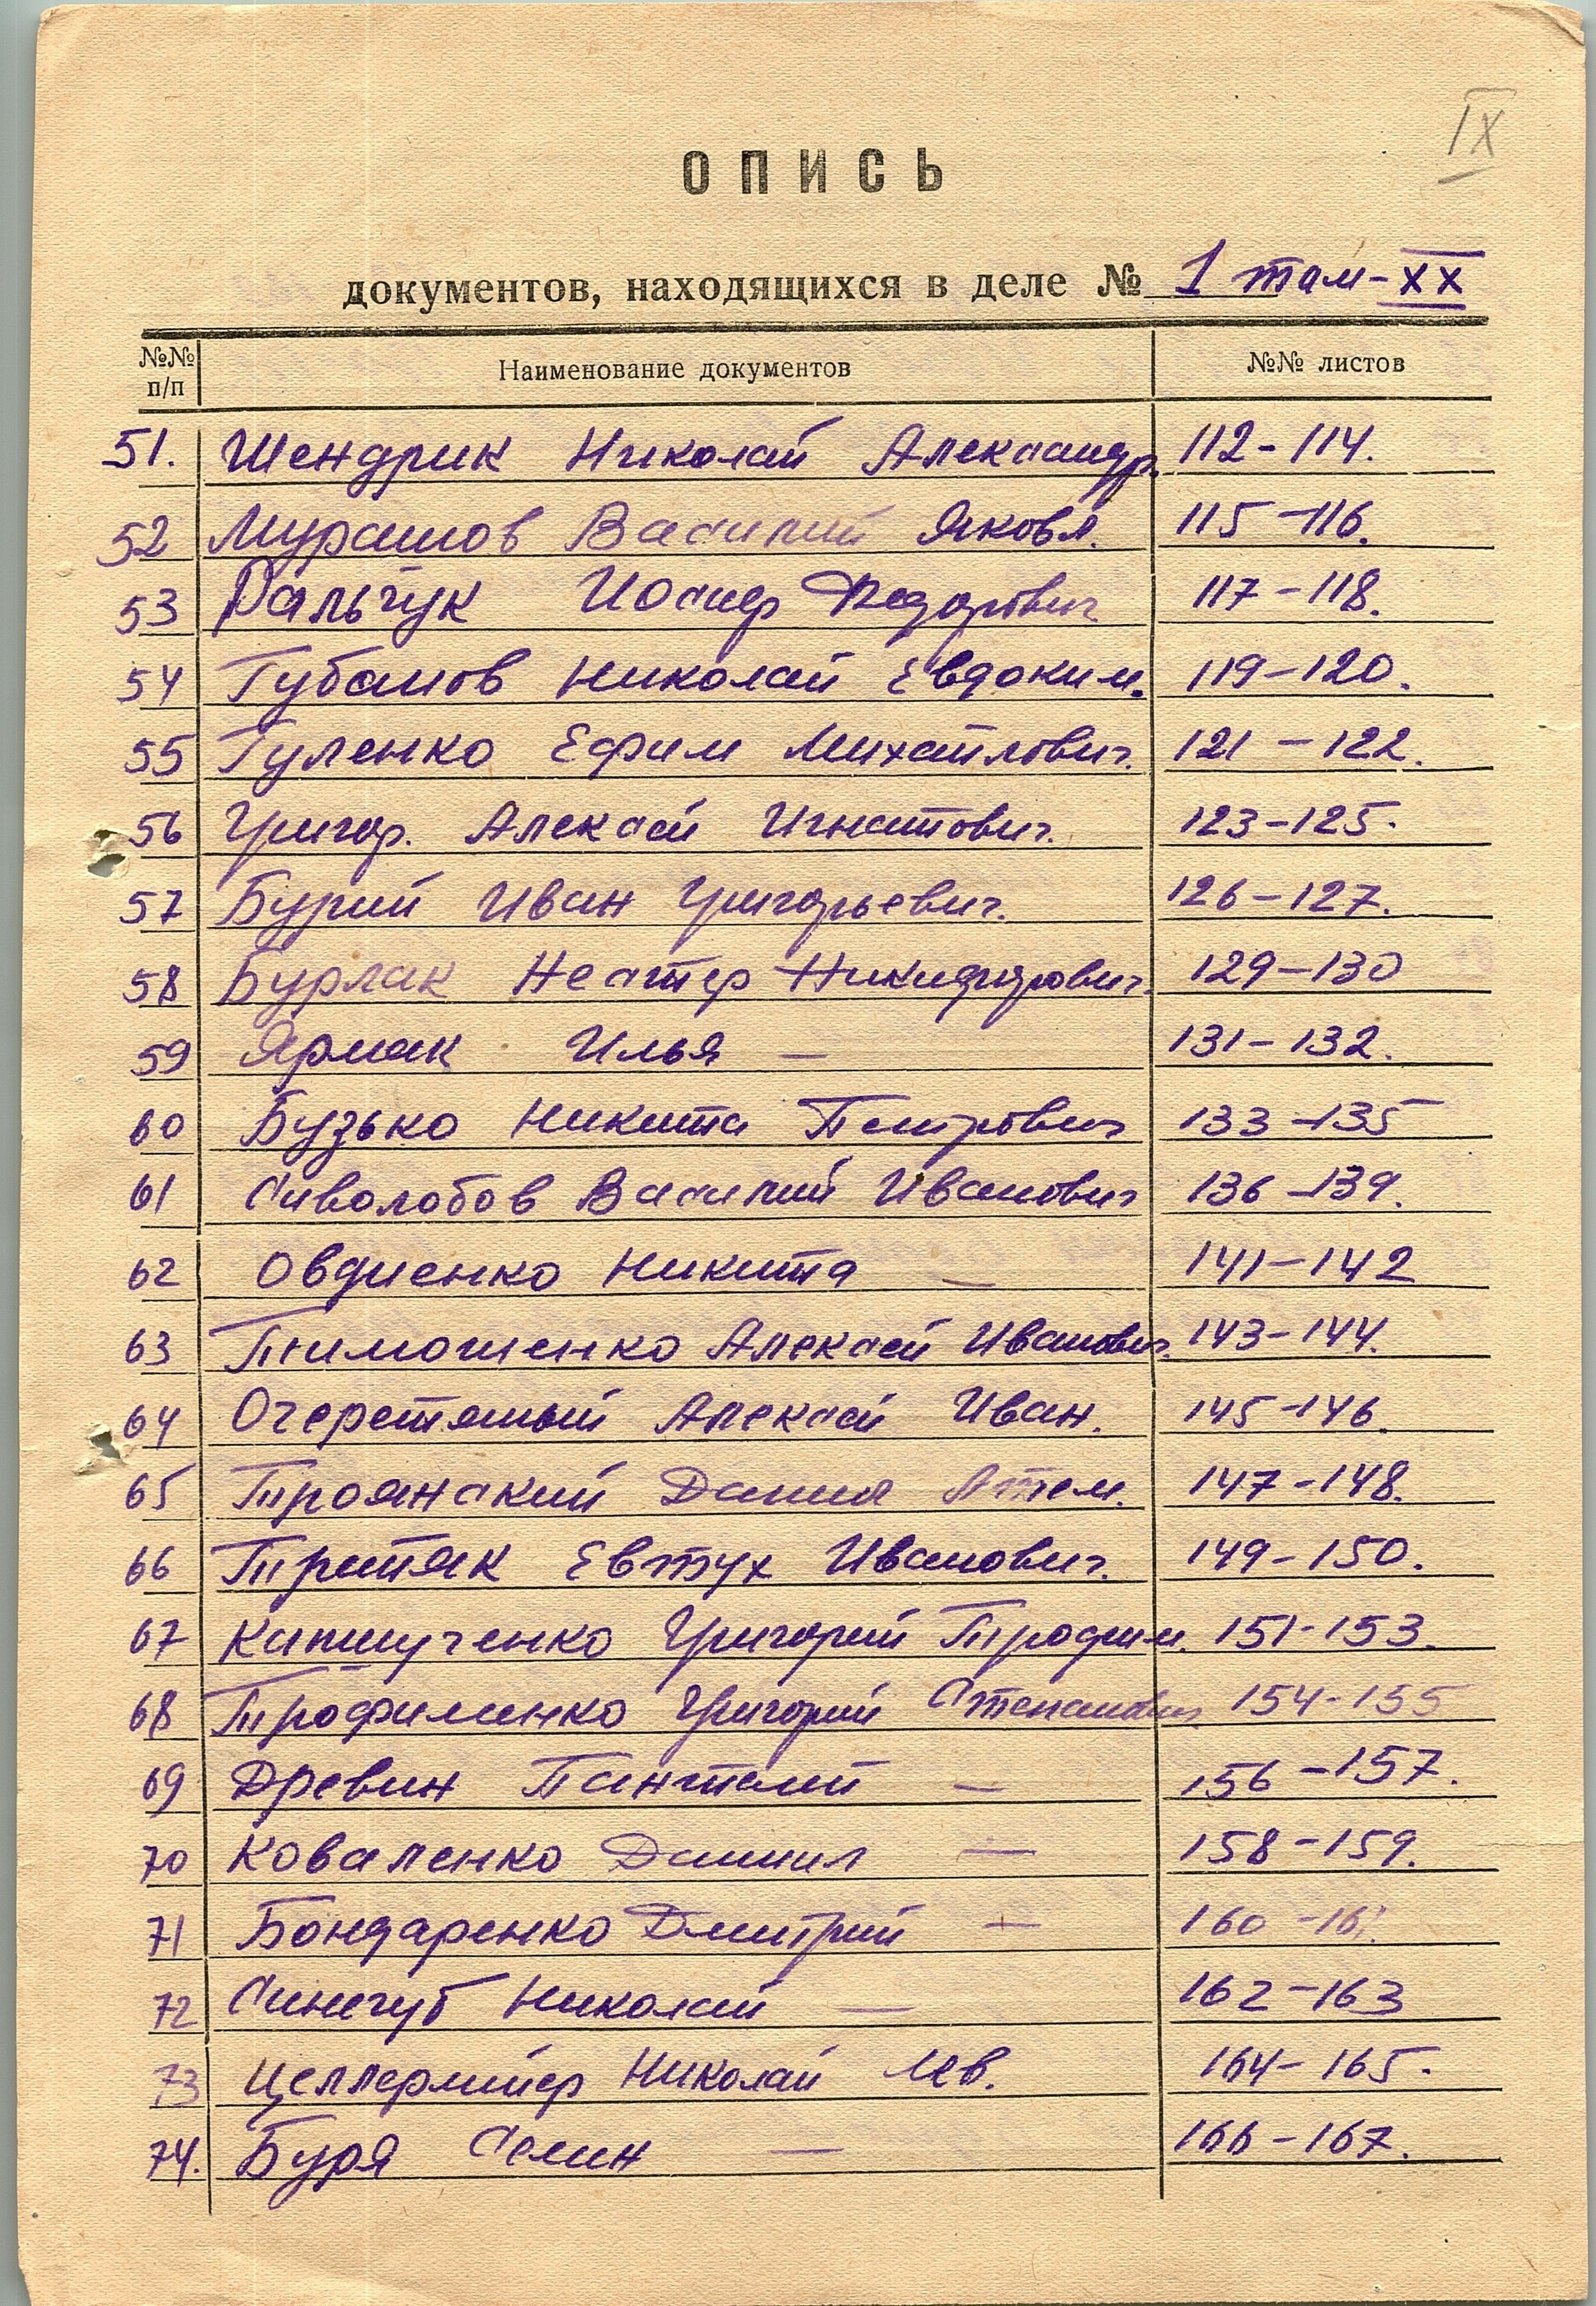 IX
ОПИСЬ
документов, находящихся в деле № 1 том-XX
№№ п/п Наименование документов №№ листов
51. Шендрик Николай Александр. 112-114.
52 Мурашов Василий Яковл. 115-116.
53 Пальчук Иосиф Федорович 117-118.
54 Губанов Николай Евдоким. 119-120.
55 Гуленко Ефим Михайлович. 121-122.
56 Григор. Алексей Игнатович. 123-125.
57 Бурий Иван Григорьевич. 126-127.
58 Бурлак Нестер Никифорович. 129-130
59 Ярмак Илья — 131-132.
60 Бузько Никита Петрович 133-135
61 Сиволобов Василий Иванович 136-139.
62 Овдиенко Никита — 141-142
63 Тимошенко Алексей Иванович. 143-144.
64 Очеретяный Алексей Иван. 145-146.
65 Троянский Данил Артем. 147-148.
66 Третяк Евтух Иванович. 149-150.
67 Григорий Трофим. 151-153.
68 Трофименко Григорий Степанович. 154-155
69 Древин Пантелей — 156-157.
70 Коваленко Даниил — 158-159.
71 Бондаренко Дмитрий — 160-161.
72 Синегуб Николай — 162-163
73 Целлермайер Николай Лев. 164-165.
74. Буря Семен — 166-167.